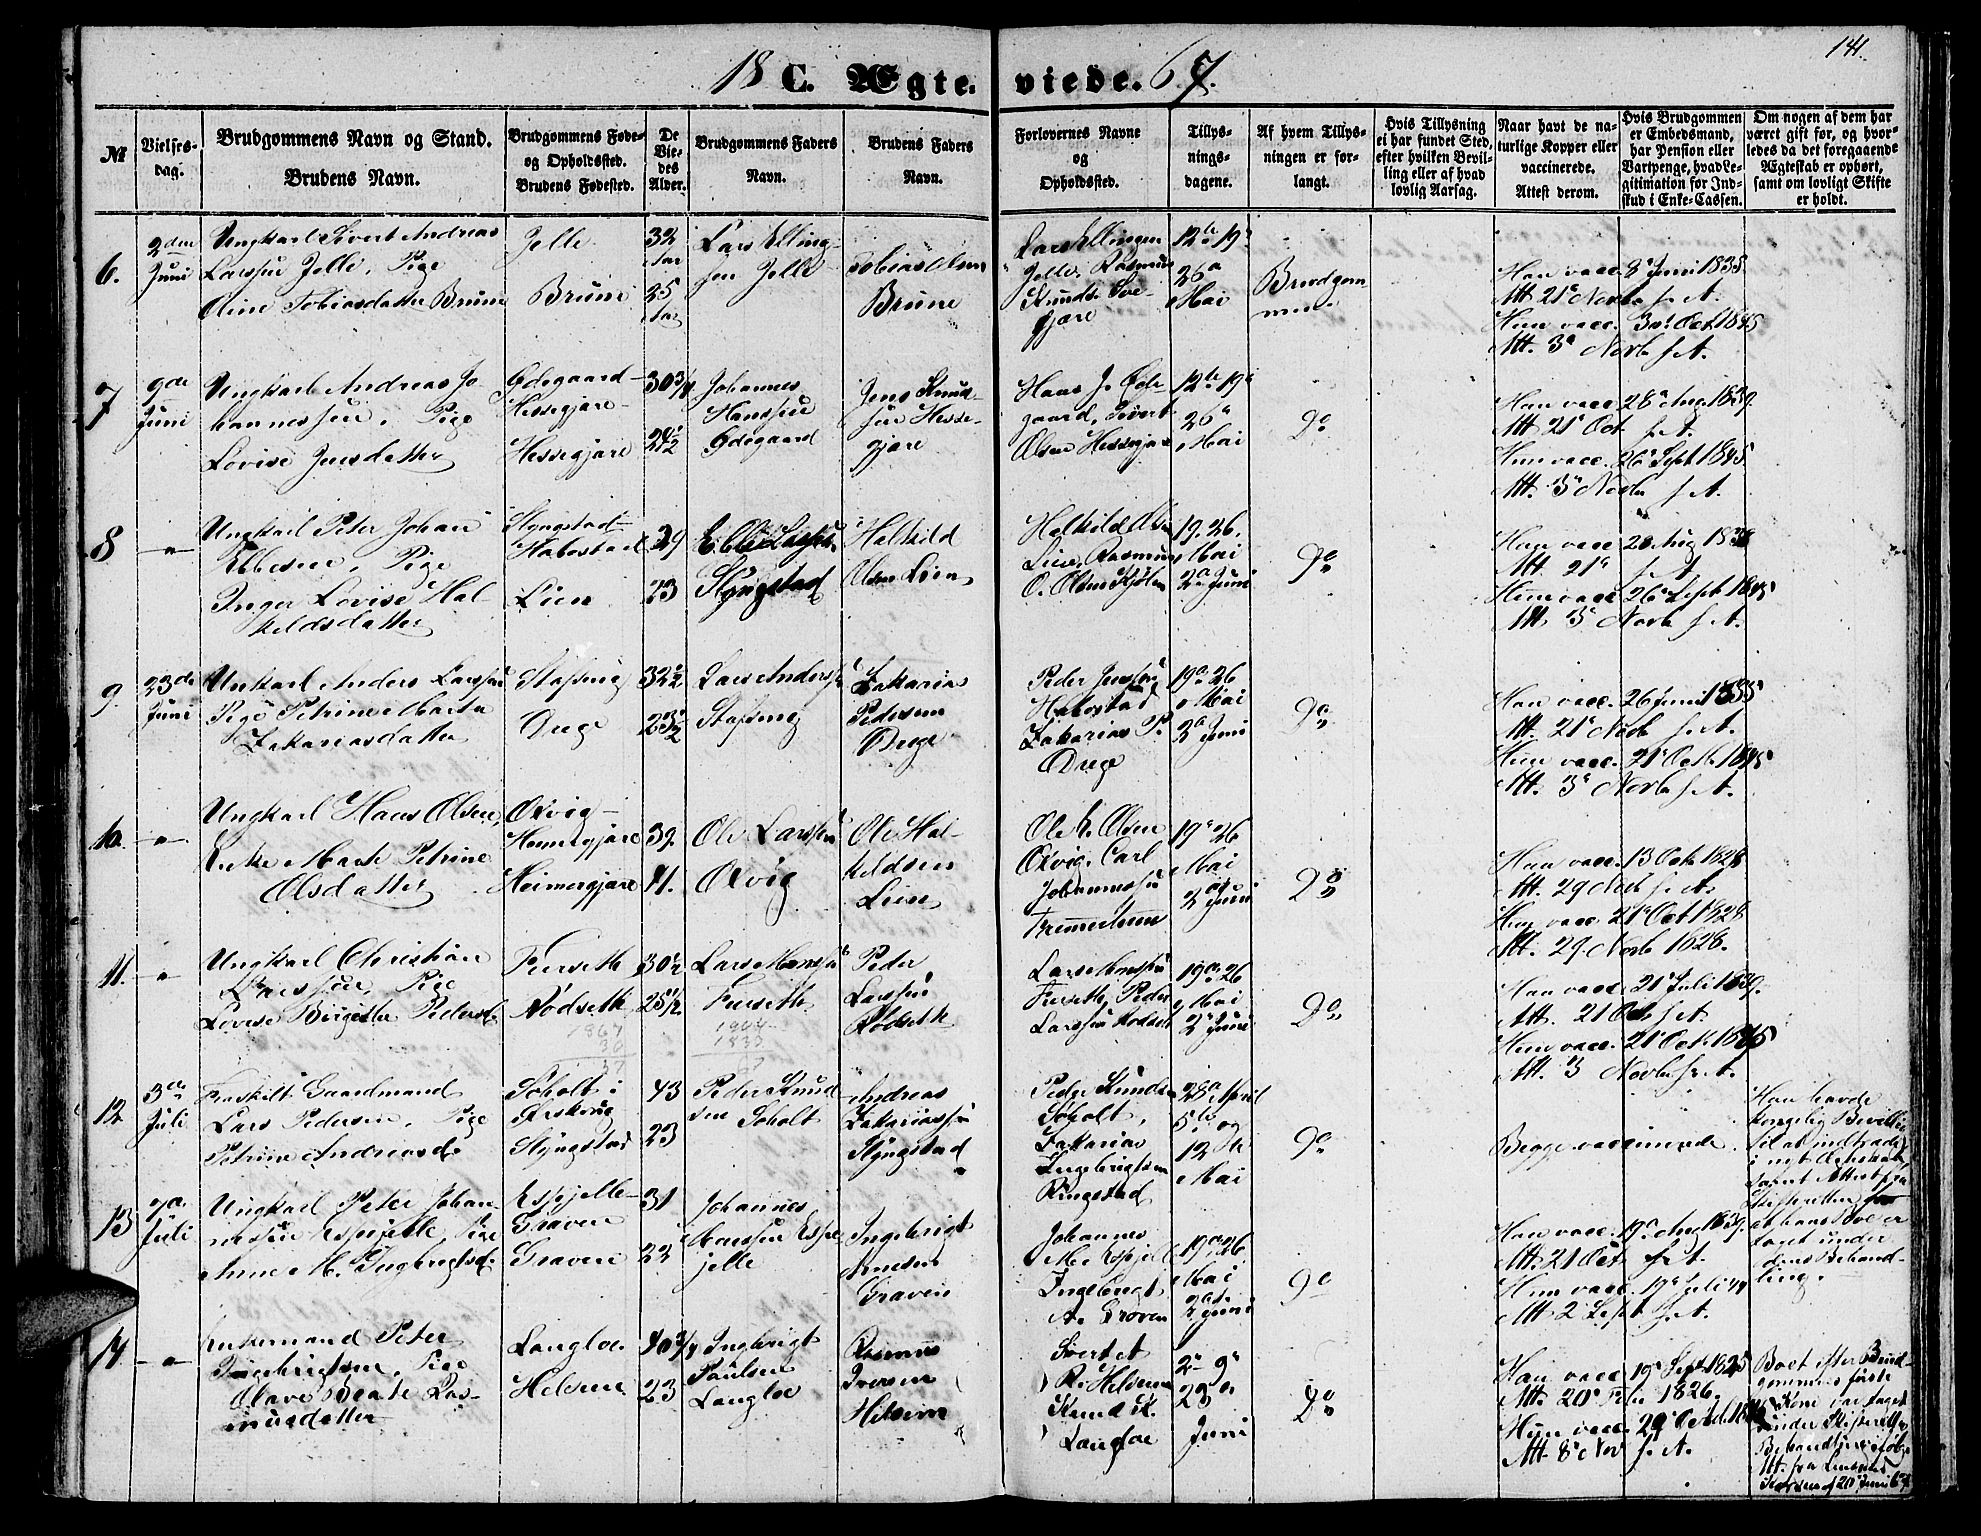 18 C. Ægteviede. 67.
141.
№
Vielses-
dag.
Brudgommens Navn og Stand.
Brudens Navn.
Brudgommens Føde-
og Opholdssted.
Brudens Fødested.
De
Vie-
des
Alder.
Brudgommens Faders
Navn.
Brudens Faders
Navn.
Forlovernes Navne
og
Opholdssted.
Tillys-
nings-
dagene.
Af hvem Tillys-
ningen er for-
langt.
Hvis Tillysning
ei har fundet Sted,
efter hvilken Bevil-
ling eller af hvad
lovlig Aarsag.
Naar havt de na-
turlige Kopper eller
vaccinerede.
Attest derom.
Hvis Brudgommen
er Embedsmand,
har Pension eller
Vartpenge, hvad Le-
gitimation for Ind-
skud i Enke-Cassen.
Om nogen af dem har
været gift før, og hvor-
ledes da det foregaaende
Ægteskab er ophørt,
samt om lovligt Skifte
er holdt.
6.
2den
Juni
Ungkarl Sivert Andreas
Larssen Jelle, Pige
Oline Tobiasdatter Brune
Jelle
Brune
32
Aar
25
Aar
Lars Elling-
sen Jelle
Tobias Olsen
Brune
Lars Ellingsen
Jelle, Rasmus
Knuds.
gjære
12te 19de
26de
Mai
Brudgom-
men
Han vacc. 8de Juni 1835
Att. 21de Novb. s. A.
Hun vacc. 30te Oct. 1845
Att. 3de Novb s. A.
7
9de
Juni
Ungkarl Andreas Jo
hannessen, Pige
Lovise Jensdatter
Ødegaard-
Hessegjære-
Hessegjære
30 3/4
24 1/2
Johannes
Hanssen
Ødegaard
Jens Knud-
sen Hesse-
gjære
Hans J. Øde-
gaard, Sivert
Olsen Hessegjære
12te 19de
26de
Mai
Do
Han vacc. 28de Aug. 1839.
Att 21de Oct s. A.
Hun vacc. 26de Sept 1845
Att. 3de Novbr s. A.
8
-"-
Ungkarl Peter Johan
Ebbesen, Pige
Inger Lovise Hal-
keldsdatter
Slyngstad-
Habostad
Lien
29
23
Slyngstad
Halkild
Olsen Lien
Halkild Olsen
Lien, Rasmus
O. Olsen
19. 26.
Mai
2den Juni
Do
Han vacc 28 Aug 1838
Att. 21de s. A
Hun vacc 26de Sept 1845
Att. 3de Novb s. A.
9.
23de
Juni
Ungkarl Anders Larssen
Pige Petrine Marta
Zakariasdatter
Stafseng
Drege
32 1/2
23 1/2
Lars Anderss.
Stafseng
Zakarias
Pedersen
Drege
Peder Jenssen
Habostad
Zakarias P.
Drege
19de 26
Mai
2de Juni
Do
Han vacc. 26 Juni 1835
Att. 21de Novb s. A.
Hun vacc. 21de Octb. 1845
Att. 3de Novb s. A.
10.
-"-
Ungkarl Hans Olsen,
Enke Marte Petrine
Olsdatter
Oxvig-
Hemregjære
Heimregjære
39.
41.
Ole Larssen
Oxvig
Ole Hal-
keldsen
Lien
Ole L. Olsen
Oxvig, Carl
Johannessen
19de 26
Mai
2den Juni
Do
Han vacc. 13 Octb 1828
Att. 29 Novb s. A.
Hun vacc 21de Oct 1828
Att. 29 Novb 1828.
11.
-"
Ungkarl Christian
Larssen, Pige
Lovise Birgitta Pedersd.
Furseth
Rødseth
1867
30
37
30 1/2
25 1/2
Lars Monssen
Furseth.
1837
Peder
Larssen
Rødseth
Lars Monssen
Furseth, Peder
Larssen Rødset
19de 26
Mai
2den Juni
Do
Han vacc. 21de Juli 1839.
Att. 21 Oct s. A.
Hun vacc. 21de Octb 1845
Att. 3 Novb. s. A.
12
3de
Juli
Fraskilt Gaardmand
Lars Pedersen, Pige
Petrine Andreasd.
Søholt i
Ørskoug
Slyngstad
43
23
Peder Knud
sen Søholt
Andreas
Zakariassen
Slyngstad
Peder Knudsen
Søholt,
Zakarias
Ingebrigtsen
Ringstad
28de April
5te og
12te
Mai
Do
Begge vaccinerede.
Han havde
kongelig Bevilling
til at indtræde
i nyt Ægteskab
samt Attest fra
Skifteretten
at hans Boe er
taget under
dens Behand-
ling.
13
7de
Juli
Ungkarl Peter Johan-
nessen Espjelle, Pige
Anne M. Ingebrigtsd.
Espjelle-
Graven
Graven
31
22
Johannes
Monssen Espe
jelle
Ingebrigt
Arnesen
Graven
Johannes
M. Espjelle
Ingebrigt
A. Graven
19de 26
Mai
2den Juni
Do
Han vacc. 19de Aug 1839.
Att. 21 Oct s. A.
Hun vacc. 19de Juli 44
Att. 2 Sept s. A.
14
-"-
Enkemand Peter
Ingebrigtsen, Pige
Olave Beate Ras-
musdatter
Langloe
Helsem
40 3/4
23
Ingebrigt
Paulsen
Langloe
Rasmus
Iversen
Helsem
Sivert
R. Helsem
Knud K.
Langloe
2de 9de
23de
Juni
Do
Han vacc. 19de Sept 1825
Att. 20de 1826.
Hun vacc. 29de Octb.
Att. 8de Nov s. A.
Boet efter Brud-
gommens første
Kone er taget
under Skifterettens
Behandling ifølge
Att. fra
af 20de Juni 67